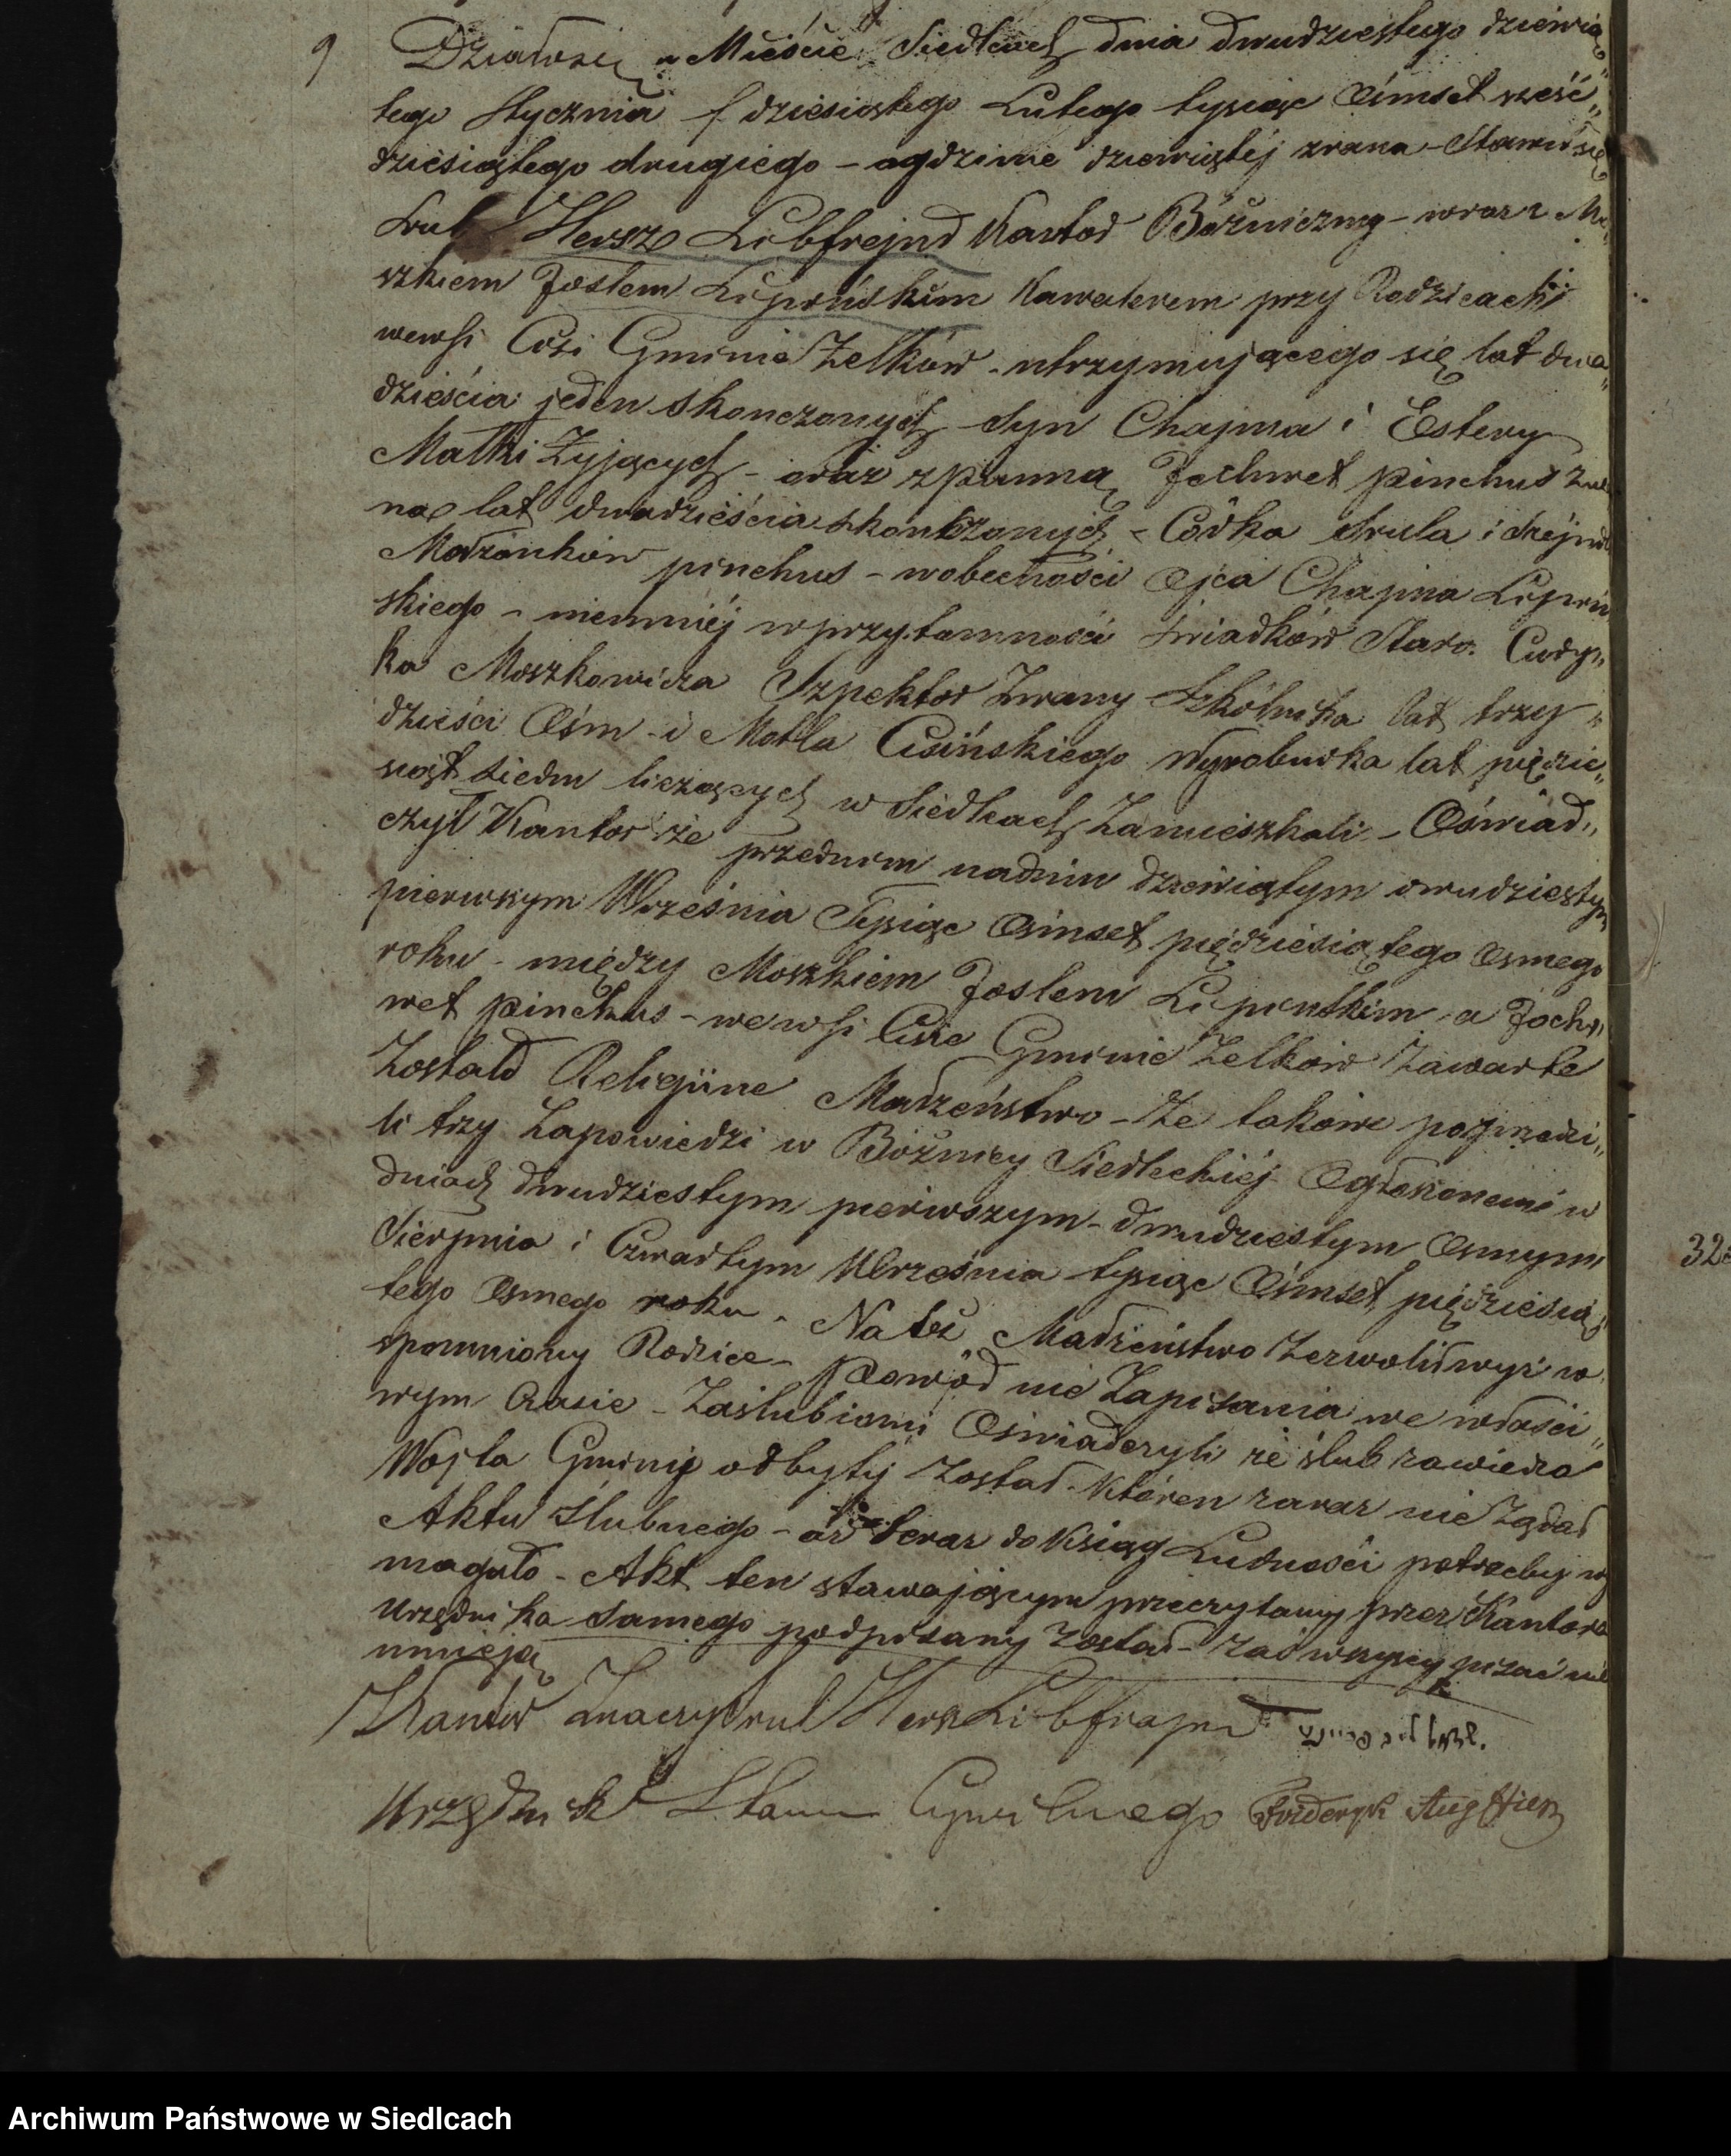 9 Działosię w Mieście Siedlcach dnia dwudziestego dziewią„
tego Stycznia / dziesiątego Lutego tysiąc Ośmset sześć„
dziesiątego drugiego – ogdzinie dziewiątéj zrana – Stawił się
Srul Hersz Libfrejnd Kantor Bóżniczny – wraz z Mo„
szkiem Joslem Lipińskim Kawalerem przy Rodzicach
wewsi Cisi Gminie Zelków – utrzymującego się lat dwa„
dzieścia jeden skonczonych Syn Chajma i Estery
Matki Żyjących – oraz zpanną Jochwet Pinchus
na lat dwadzieścia skonczonych – Córka Srula i
Małżonków pinchus – wobecności Ojca Chajma Lipiń
skiego – niemniéj wprzytomności Świadków Staro. Cudy„
ka Moszkowicza Szpektor Zwany Szkólnika lat trzy„
dzieści Ośm – i Motla Cisińskiego Wyrobnika lat pięćdzie„
siąt siedm liczących w Siedlcach Zamieszkali – Oświad„
czył Kantor że przednim nadniu dziewiątym dwudziestym
pierwszym Września Tysiąc Ośmset pięćdziesiątego osmego
roku – między Moszkiem Joslem Lipinskim, a Joch„
wet pinchus – wewsi Cisie Gminie Zelków Zawarte
Zostało Religijne Małżeństwo – Ze takowe poprzedzi„
li trzy Zapowiedzi w Bóżnicy Siedleckiéj Ogłoszonemi w
dniach dwudziestym pierwszym – dwudziestym Osmym
Sierpnia i Czwartym Września tysiąc Ośmset pięćdziesią„
tego Osmego roku – Na też Małżeństwo Zezwolili wyż w
spomniony Rodzice – powód nie Zapisania we właści„
wym Czasie – Zaślubiony Oświadczyli że ślub zawiedza
Wójta Gminy odbyty został – któren zaraz nie Żądał
Aktu Ślubnego – aż teraz do Ksiąg Ludności potrzeby wy
magało – Akt ten stawającym przeczytany przez Kantora
Urzędnika samego podpisany został – zaś wszyscy pisać nie
umieją
Kantór Znaczy Srul Hersz Libfrajnd
Urzędnik Stanu Cywilnego Frideryk Aug
32
Archiwum Państwowe w Siedlcach